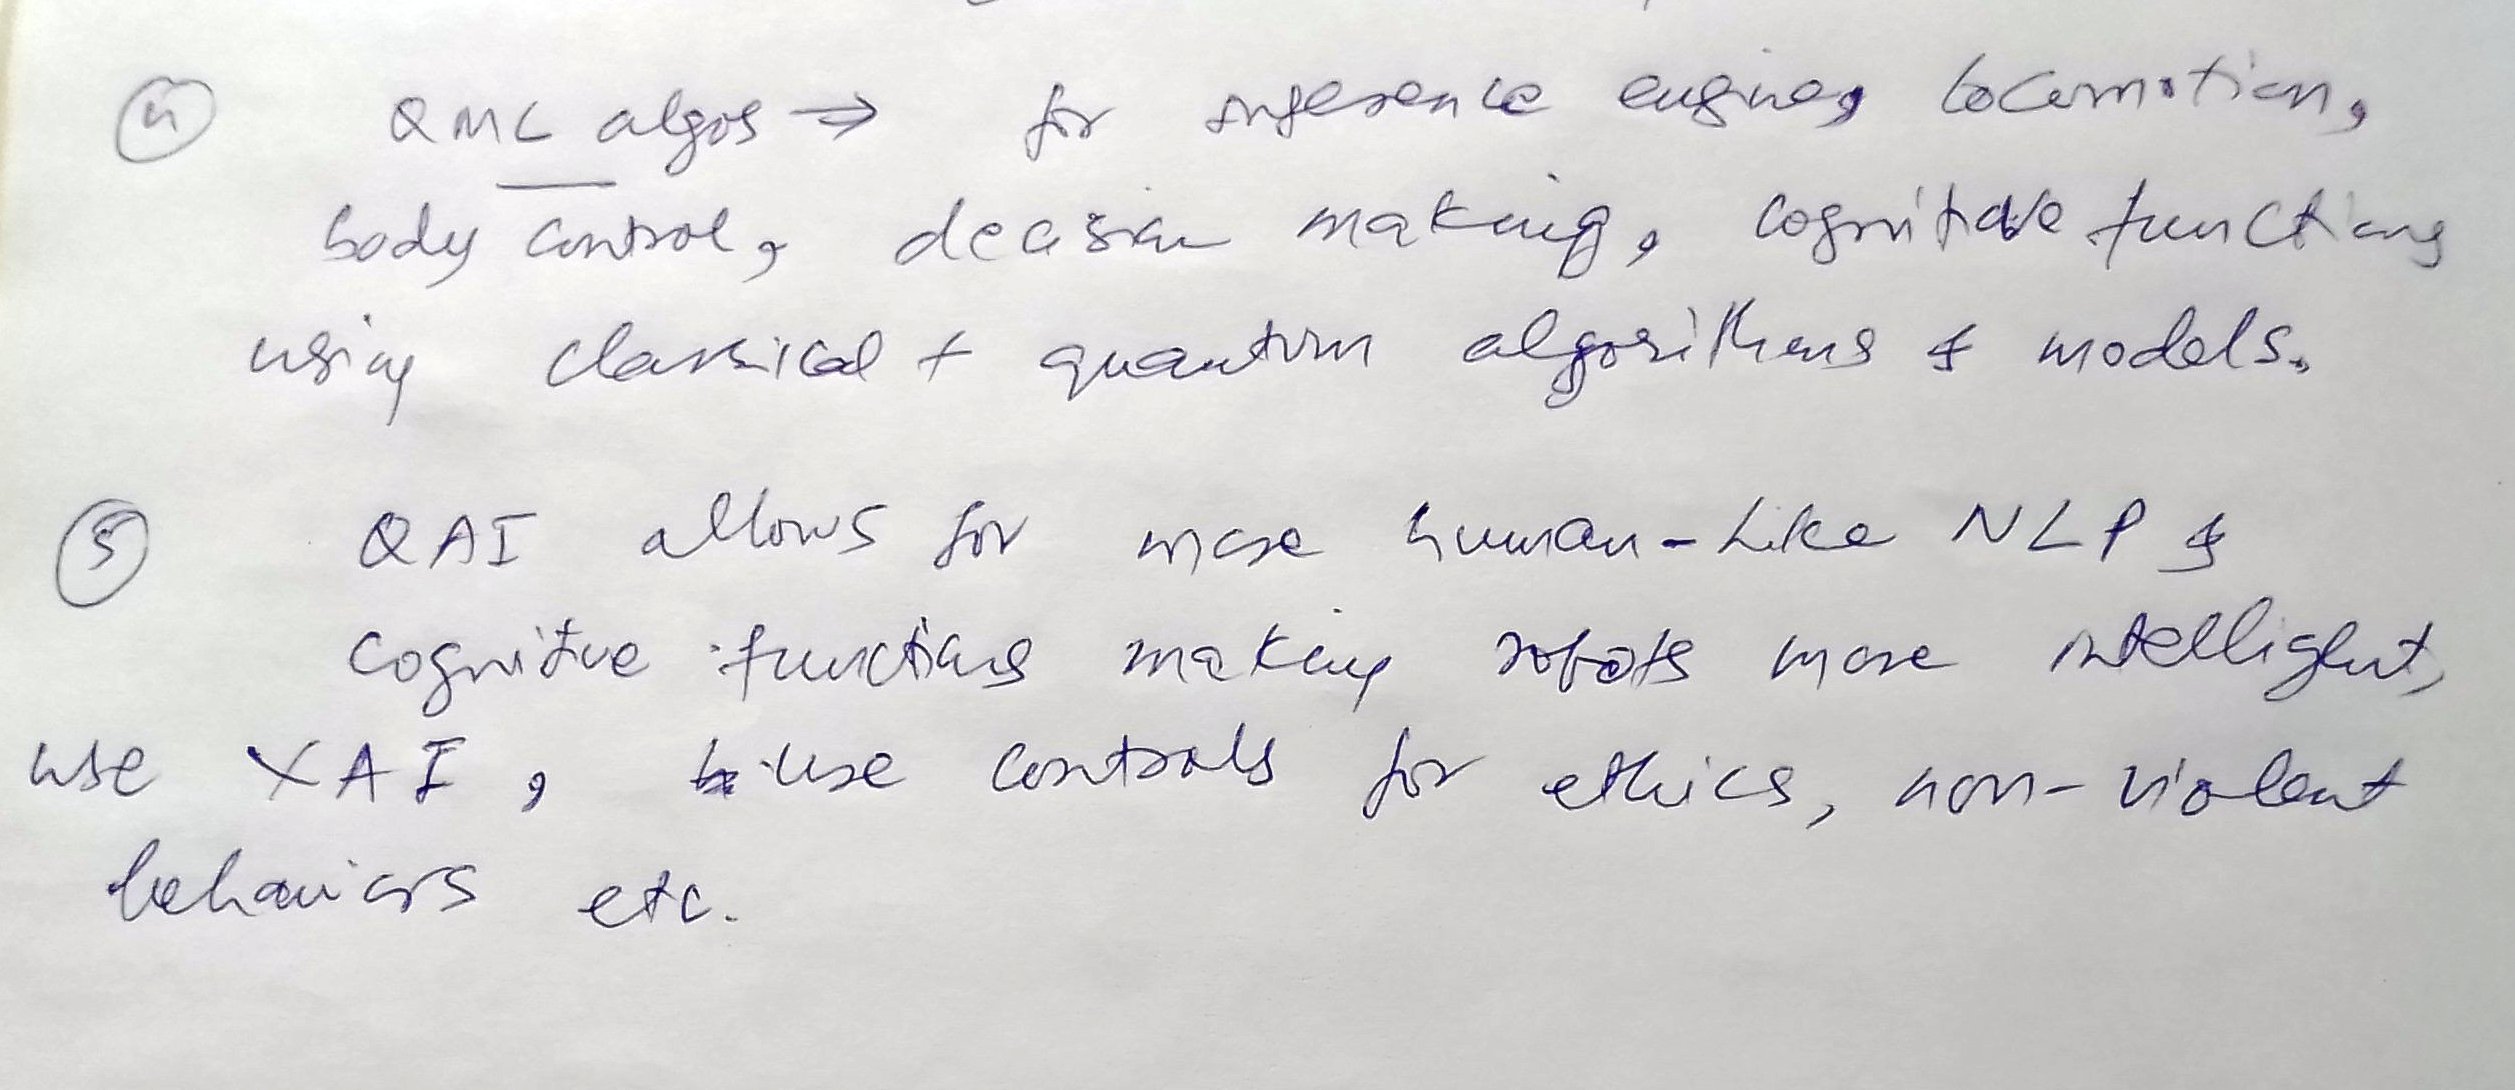 ④
QML algos → for inference engine, locomotion,
body control, decision making, cognitive functions
using classical + quantum algorithms & models.
⑤
QAI allows for more human-like NLP &
cognitive functions making robots more intelligent,
use XAI, in-use controls for ethics, non-violent
behaviors etc.